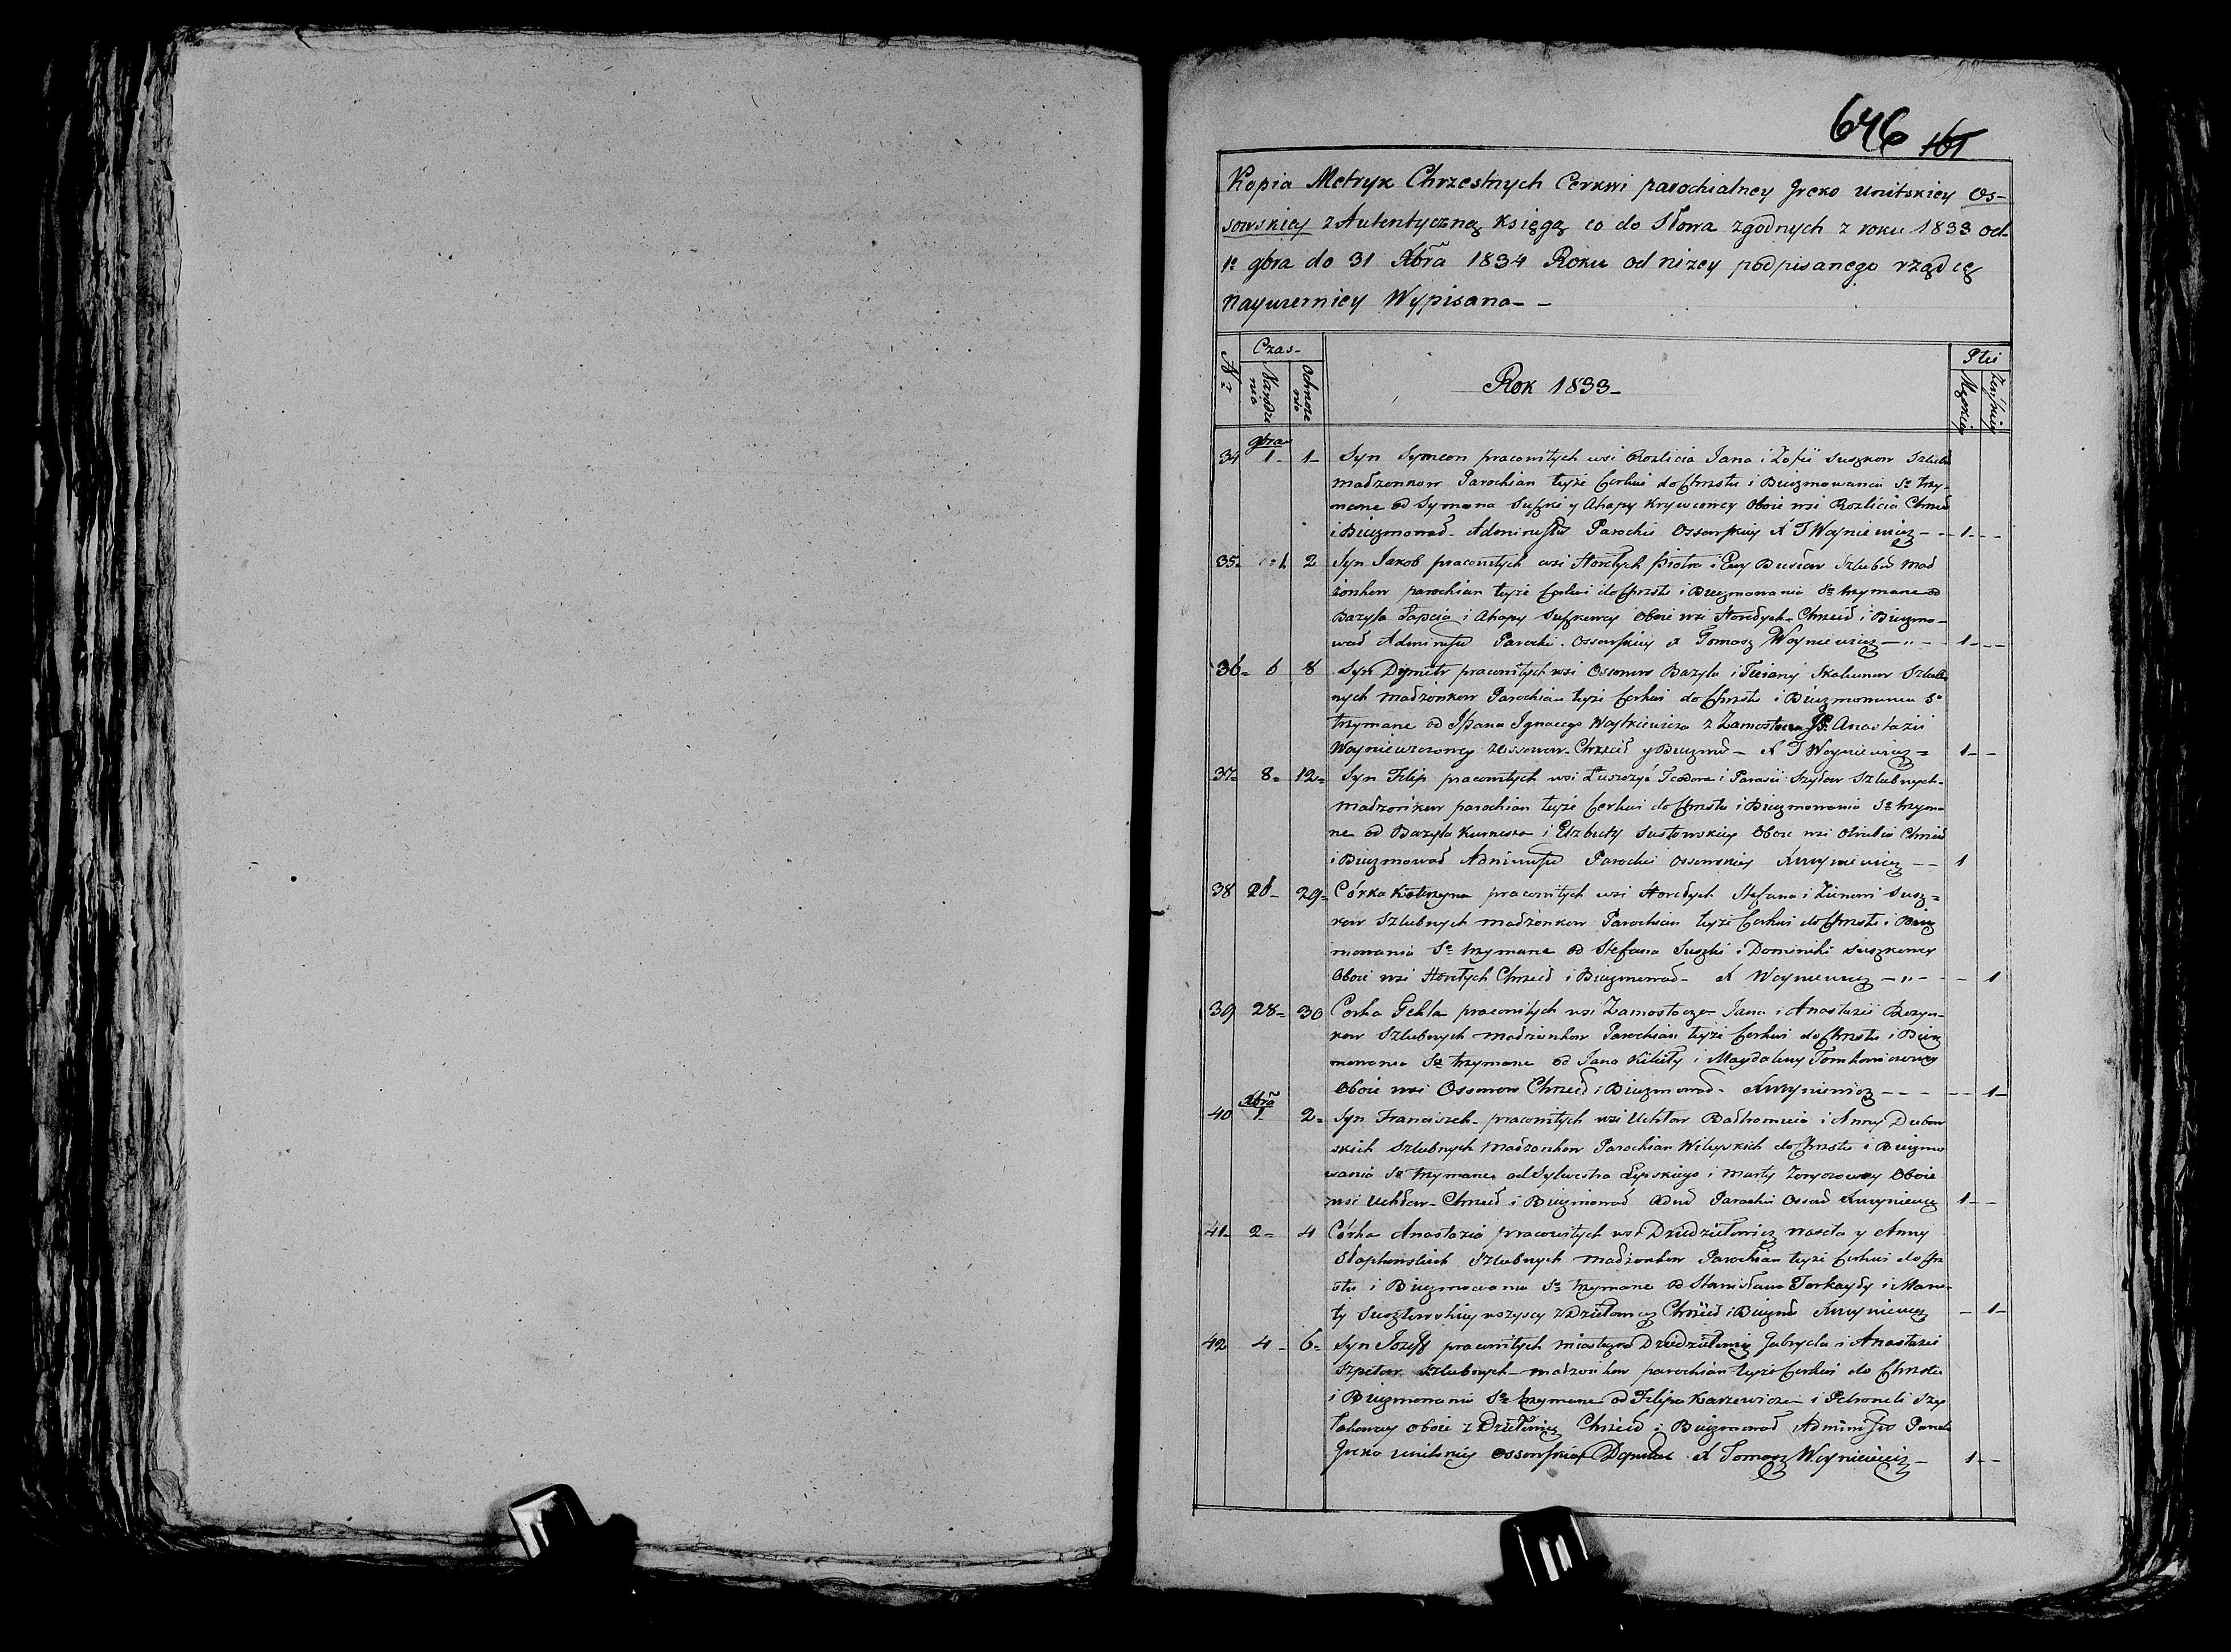 646 161
Kopia Metryk Chrzestnych Cerkwi parochialney Greko Unitskiey Os-
sowskiey z Autentyczną księgą co do Słowa zgodnych z roku 1833 od
1º 9bra do 31 Xbra 1834 Roku od niżey podpisanego rządcę
naywierniey Wypisana
Czas
Płci
Nº
Narodze nia
Ochrzcze nia
Rok 1833
Męzkiey
Żeńskiey
9bra
34 1 1 Syn Symeon pracowitych wsi Rozlicia Jana i Zofii Suszkow Szlub
małżonkow Parochian teyże Cerkwi do Chrztu i Bierzmowania Sº trzy-
mane od Symona Suszki y Ahapy Krywcowey Oboie wsi Rozlicia Chrzcił
i Bierzmował Administr Parochii Ossowskiey X T Woyniewicz 1
35 1 2 Syn Jakob pracowitych wsi Horełych Piotra i Ewy Szlubn Mał
żonkow parochian teyże Cerkwi do Chrztu i Bierzmowania Sº trzymane od
Bazyla Łapcia i Ahapy Suszkowey Oboie wsi Horełych Chrzcił i Bierzmo-
wał Administr Parochii Ossowskiey X Tomasz Woyniewicz 1
36 6 8 Syn Dymitr pracowitych wsi Ossowow Bazyla i Teciany Skakunow Szlub
nych małżonkow Parochian teyże Cerkwi do Chrztu i Bierzmowania Sº
trzymane od JPana Ignacego Woytkiewicza z Zamostocza JP. Anastazii
Woyniewiczowey z Ossowow Chrzcił y Bierzmo X T Woyniewicz 1
37 8 12 Syn Filip pracowitych wsi Łuszczyc Teodora i Parasii Szyłow Szlubnych
małżonkow parochian teyże Cerkwi do Chrztu i Bierzmowania Sº trzyma
ne od Bazyla i Elzbiety Susłowskiey Oboie wsi Chrzcił
i Bierzmował Administr Parochii Ossowskiey X Woyniewicz 1
38 28 29 Córka Katerzyna pracowitych wsi Horełych Stefana i Zinowi Susz=
kow Szlubnych małżonkow Parochian teyże Cerkwi do Chrztu i Bierz
mowania Sº trzymane od Stefana Suszki i Dominiki Suszkowey
Oboie wsi Horełych Chrzcił i Bierzmował X Woyniewicz 1
39 28 30 Corka Tekla pracowitych wsi Zamostocze Jana i Anastazii
kow Szlubnych małżonkow Parochian teyże Cerkwi do Chrztu i Bierz
mowania Sº trzymane od Jana Kikity i Magdaleny Tomkowiczowey
Oboie wsi Ossowow Chrzcił i Bierzmował X Woyniewicz 1
Xbra
40 1 2 Syn Franciszek pracowitych wsi Uchłow Bałtromieia i Anny Dubow
skich Szlubnych Małżonkow Parochian do Chrztu i Bierzmo
wania Sº trzymane od Sylwestra Lipskiego i Marty Oboie
wsi Uchłow Chrzcił i Bierzmował Adm Parochii Ossow X Woyniewicz 1
41 2 4 Córka Anastazia pracowitych wsi Dziedziłowicz y Anny
Szlubnych małżonkow Parochian teyże Cerkwi do Chrz
stu i Bierzmowania Sº trzymane od Stanisława Torkayły i Mar-
ty Suszłowskiey wszyscy z Dziełowicz Chrzcił i Bierzm X Woyniewicz 1
42 4 6 Syn Jozeff pracowitych miasteczka Dziedziłowicz Gabryela i Anastazii
Szpitow Szlubnych małżonkow parochian teyże Cerkwi do Chrztu
i Bierzmowania Sº trzymane od Filipa Karzewicza i Petroneli Szy
oboie z Dziełowicz Chrzcił i Bierzmował Administr Paroch
Greko Unitskiey Ossowskiey X Tomasz Woyniewicz 1